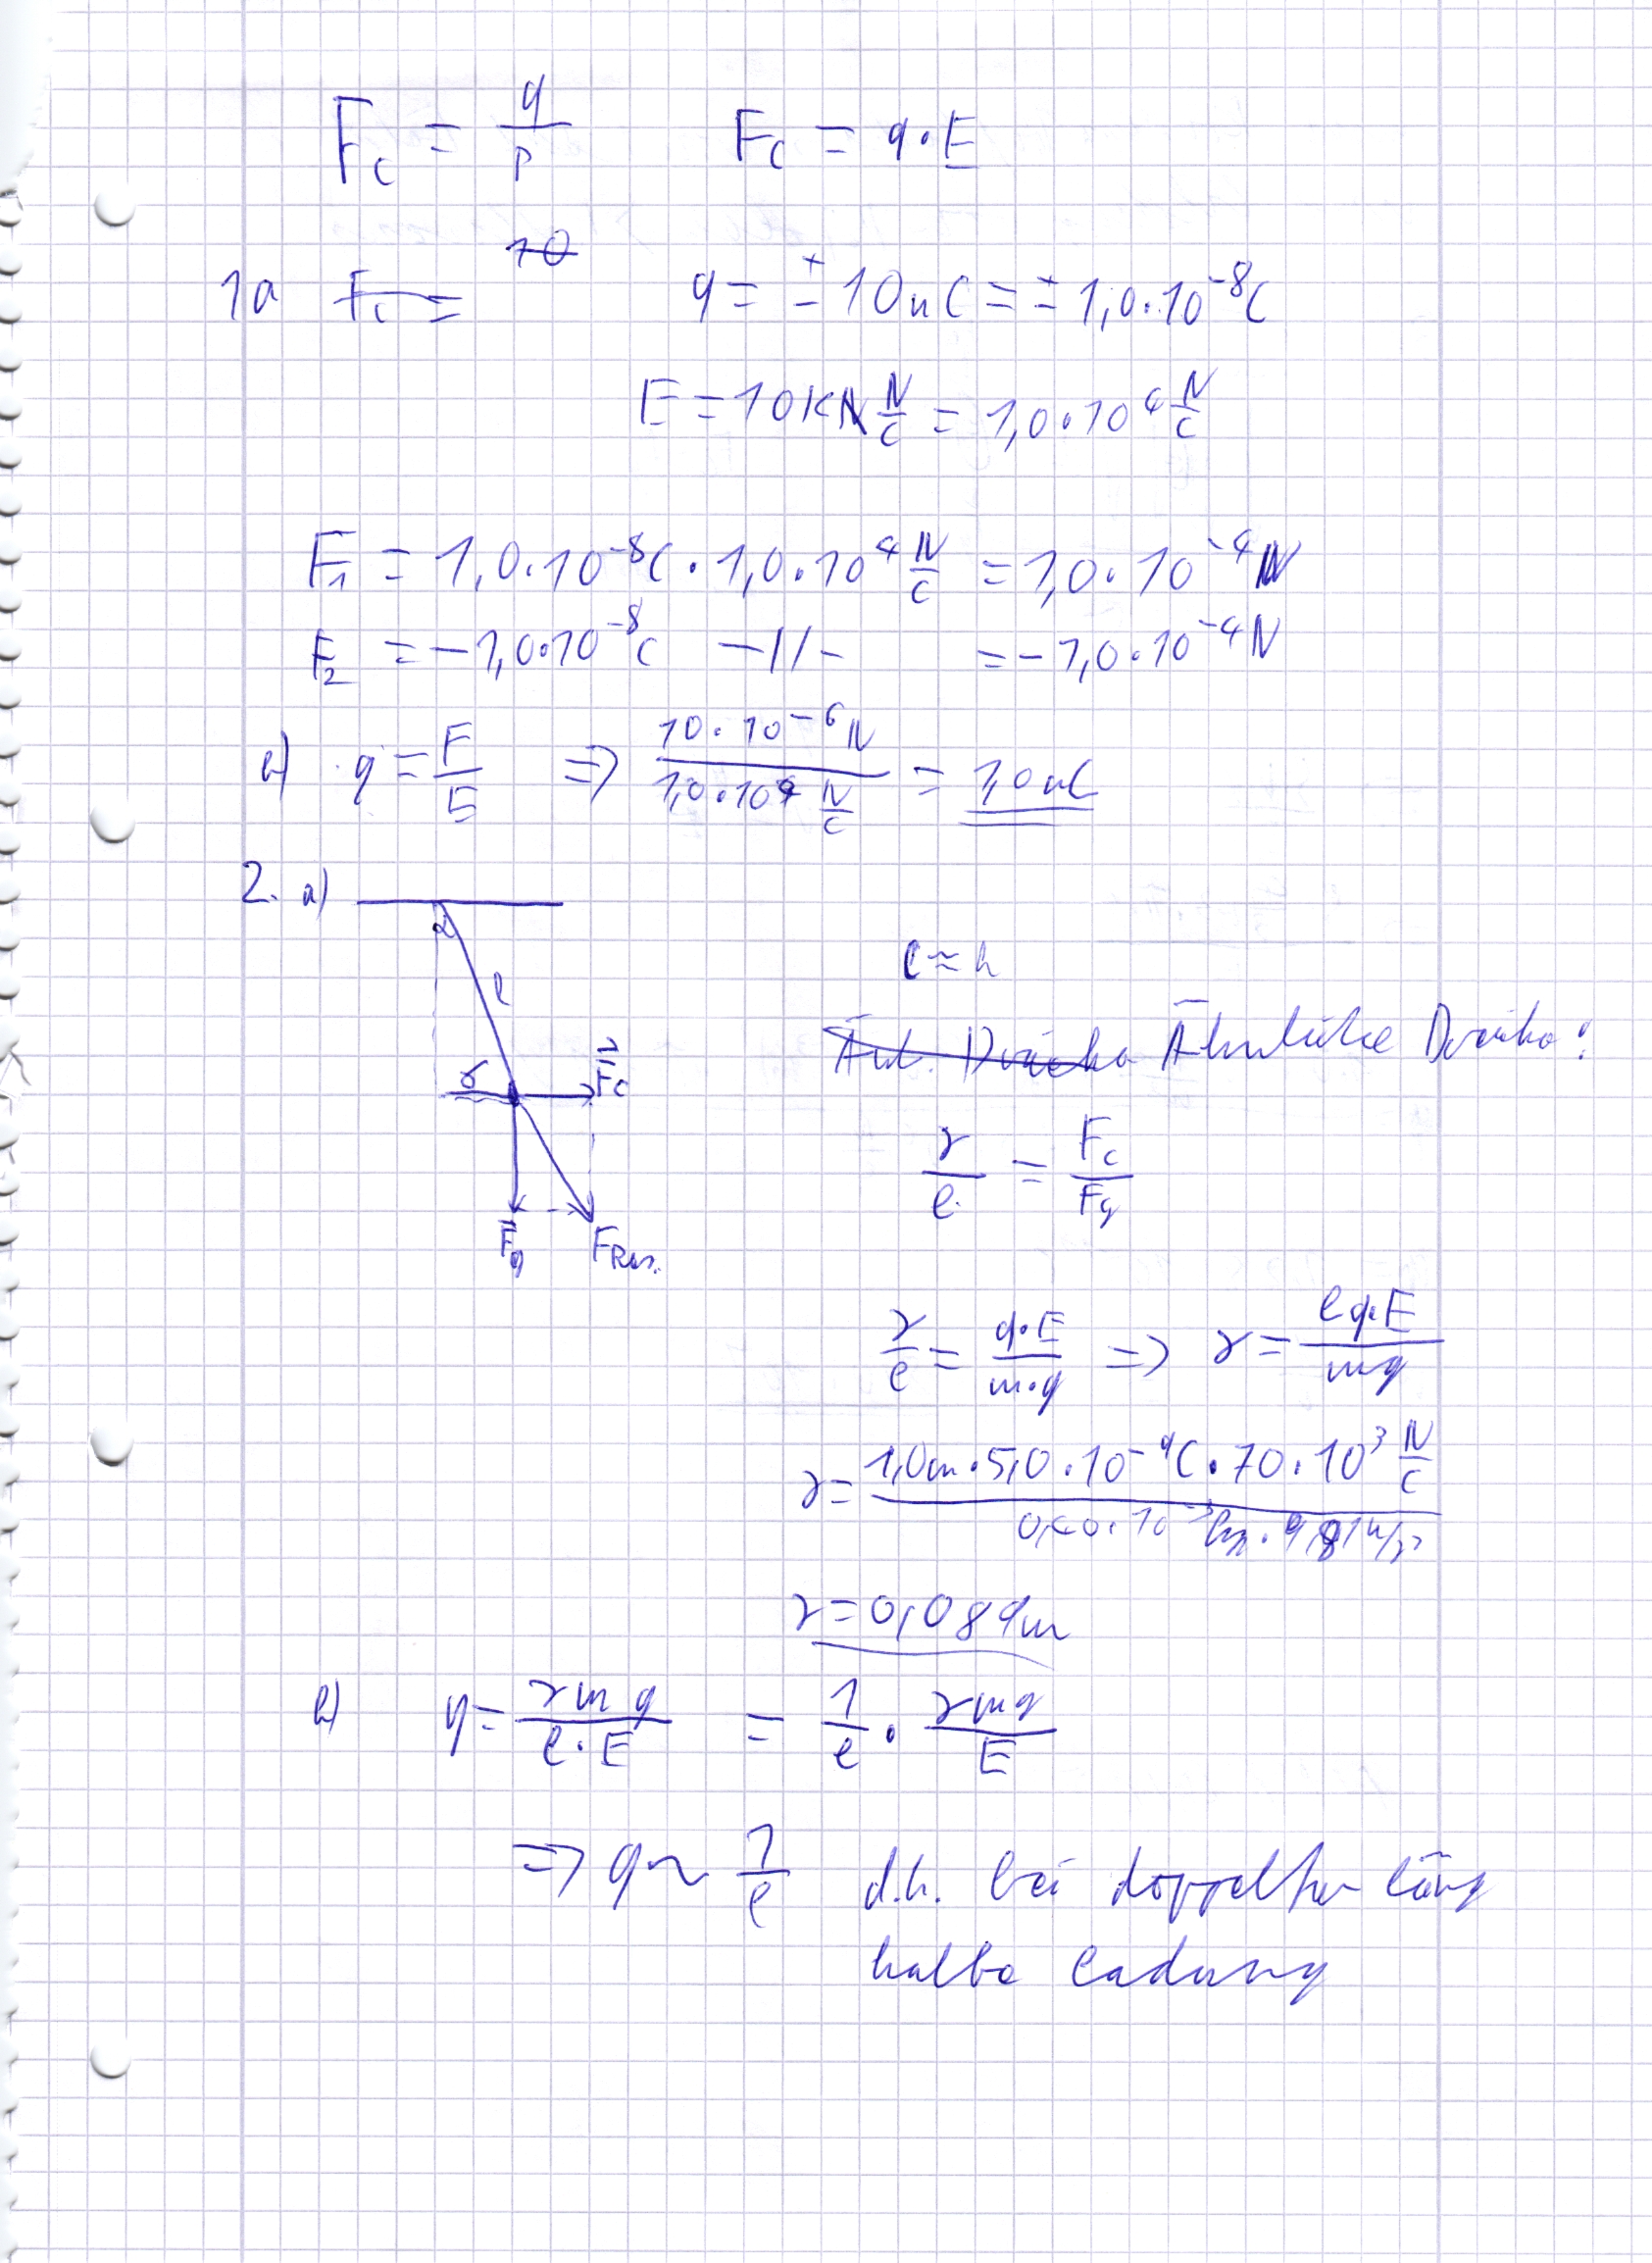 F_C = q/P    F_C = q · E
10
1a  F_C =    q = ± 10nC = ± 1,0·10^-8 C
E = 10 k N/C = 1,0·10^4 N/C
F_1 = 1,0·10^-8 C · 1,0·10^4 N/C = 1,0·10^-4 N
F_2 = -1,0·10^-8 C  -//-  = -1,0·10^-4 N
b) q = F/E ⇒ (10·10^-6 N)/(1,0·10^4 N/C) = 1,0nC
2. a)
α
l ≈ h
l
Ähnliche Dreiecke:
r  F_C
r/l = F_C/F_g
F_g  F_Res.
r/l = (q·E)/(m·g) ⇒ r = (l q·E)/(mg)
r = (1,0m · 5,0·10^-9 C · 70·10^3 N/C)/(0,40·10^-3 kg · 9,81 m/s²)
r = 0,089m
b) q = (r m g)/(l·E) = 1/l · (r m g)/E
⇒ q ~ 1/l  d.h. bei doppelter Länge
halbe Ladung